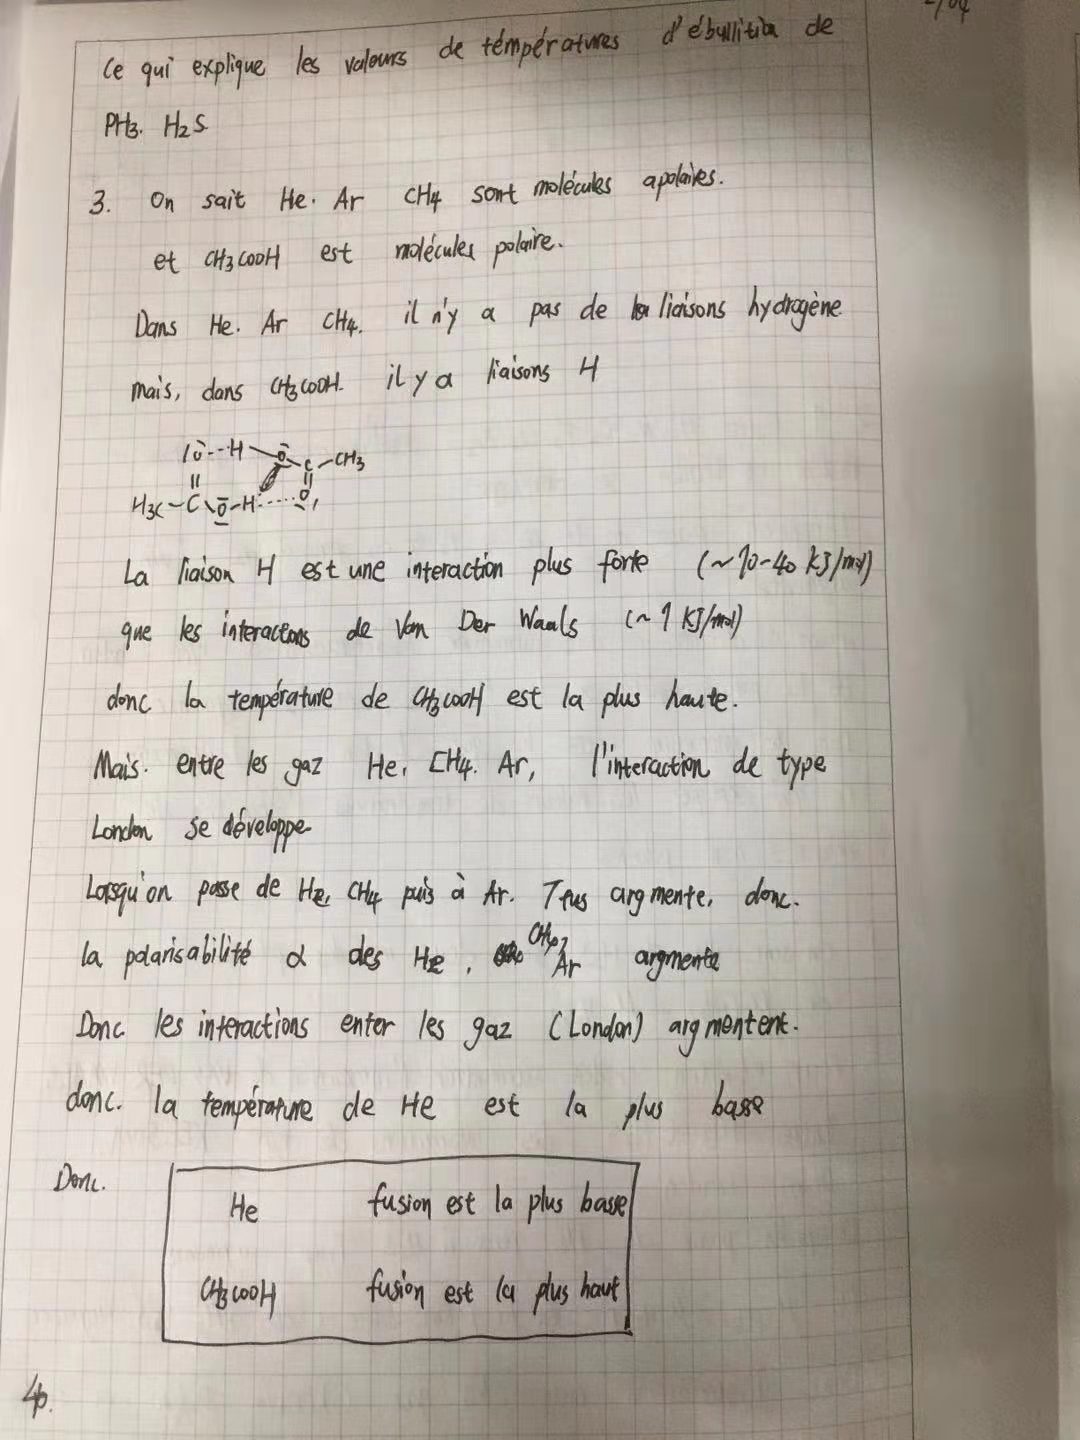 Ce qui explique les valeurs de températures d'ébullition de
PH3. H2S
3. On sait He. Ar CH4 sont molécules apolaires.
et CH3COOH est molécules polaire.
Dans He. Ar CH4. il n'y a pas de liaisons hydrogène
mais, dans CH3COOH. il y a liaisons H
|O---H—O
C—CH3
H3C—C O—H----O
La liaison H est une interaction plus forte (~10-40 kJ/mol)
que les interactions de Van Der Waals (~1 KJ/mol)
donc la température de CH3COOH est la plus haute.
Mais. entre les gaz He, CH4. Ar, l'interaction de type
London se développe
Lorsqu'on passe de He, CH4 puis à Ar. Tfus argmente, donc.
la polarisabilité α des He, CH4, Ar argmente
Donc les interactions enter les gaz (London) argmentent.
donc. la température de He est la plus basse
Donc.
He fusion est la plus basse
CH3COOH fusion est la plus haut
4p.